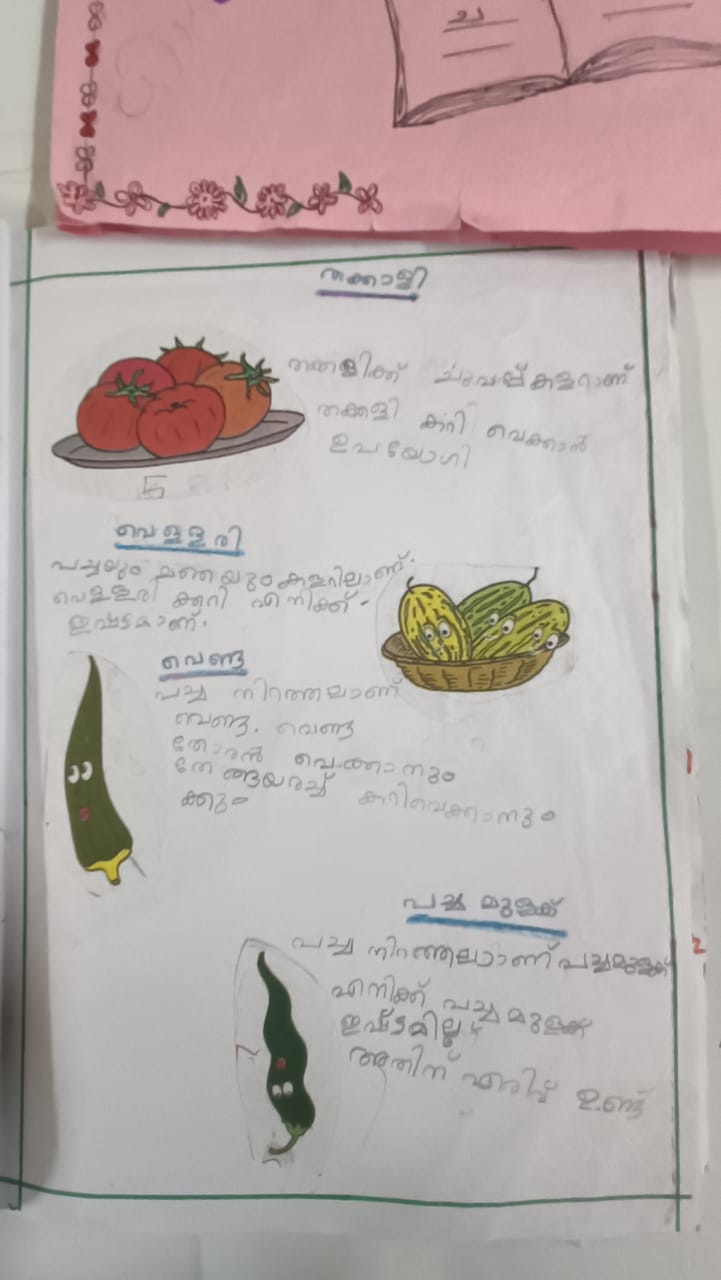 തക്കാളി
തക്കളിക്ക് ചുവപ്പ് കളറാണ്
തക്കളി കറി വെക്കാൻ
ഉപയോഗി
ക്കും
വെള്ളരി
പച്ചയും മഞ്ഞയും കളറിലാണ്.
വെള്ളരി ക്കറി എനിക്ക്
ഇഷ്ടമാണ്.
വെണ്ട
പച്ച നിറത്തലാണ്
വെണ്ട. വെണ്ട
തോരൻ വെക്കാനും
തേങ്ങയരച്ച് കറിവെക്കാനും
പച്ച മുളക്ക്
പച്ച നിറത്തലാണ് പച്ചമുളക്ക്
എനിക്ക് പച്ച മുളക്ക്
ഇഷ്ടമില്ല
അതിന് എരിവ് ഉണ്ട്